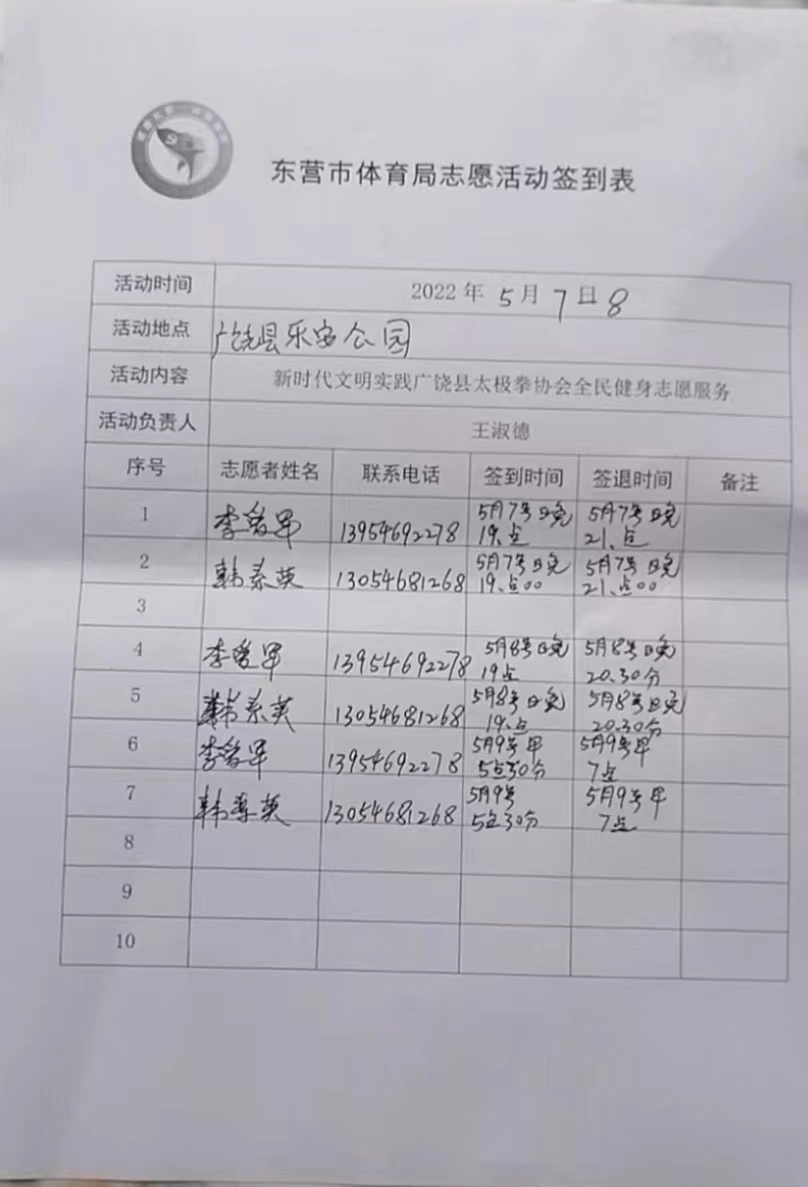 东营市体育局志愿活动签到表
活动时间 2022 年 5 月 7 日 8
活动地点 广饶县乐安公园
活动内容 新时代文明实践广饶县太极拳协会全民健身志愿服务
活动负责人 王淑德
序号 志愿者姓名 联系电话 签到时间 签退时间 备注
1 李 军 13954692278 5月7号日晚 19.点 5月7号日晚 21.点
2 韩素英 13054681268 5月7号日晚 19.点00 5月7号日晚 21.点00
3
4 李爱军 13954692278 5月8号日晚 19点 5月8号日晚 20.30分
5 韩素英 13054681268 5月8号日晚 19.点 5月8号日晚 20.30分
6 李 军 13954692278 5月9号早 5点30分 5月9号早 7点
7 韩 英 13054681268 5月9号 5点30分 5月9号早 7点
8
9
10